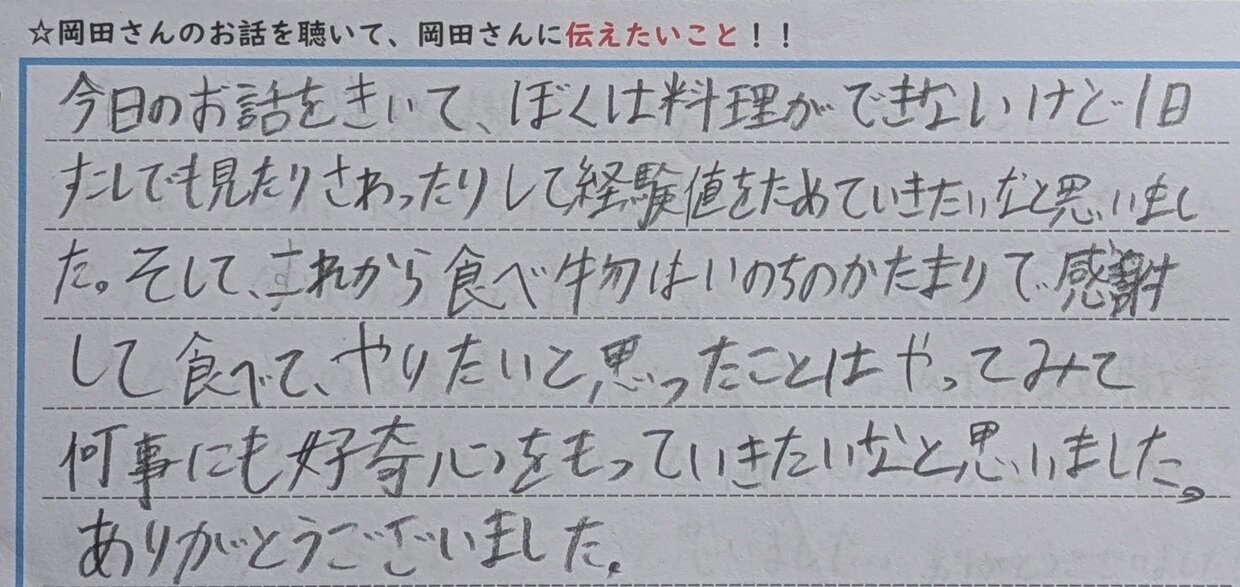 ☆岡田さんのお話を聴いて、岡田さんに伝えたいこと！！
今日のお話をきいて、ぼくは料理ができないけど1日
すこしでも見たりさわったりして経験値をためていきたいなと思いまし
た。そして、これから食べ物はいのちのかたまりで感謝
して食べて、やりたいと思ったことはやってみて
何事にも好奇心をもっていきたいなと思いました。
ありがとうございました。